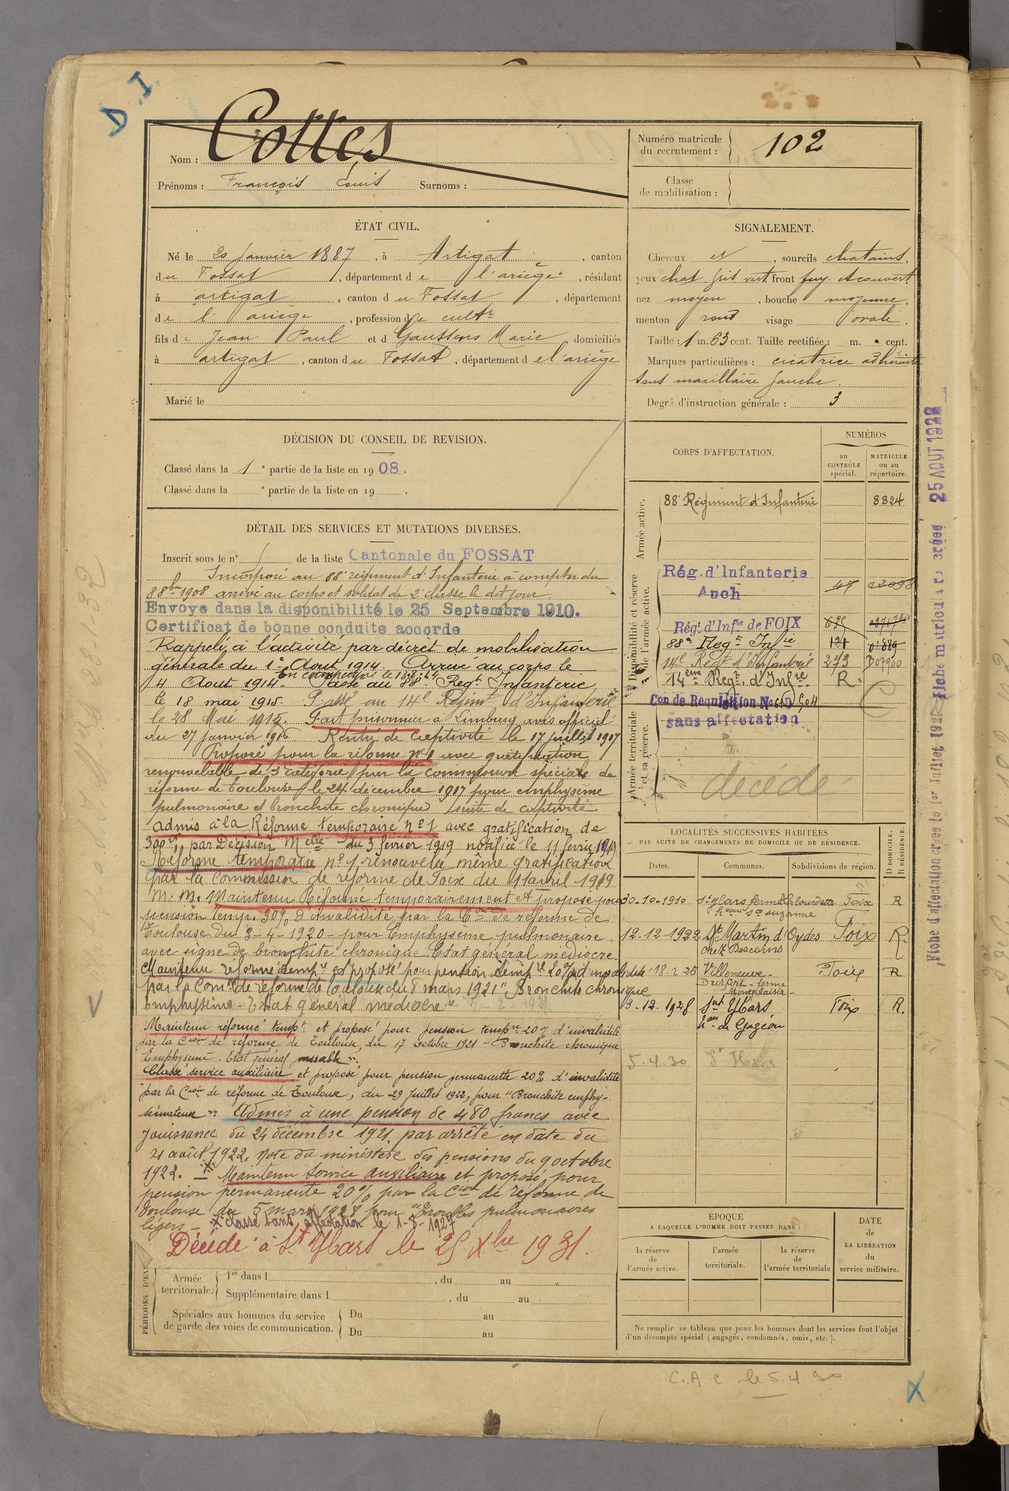 D.I.
Nom : Cottes
Prénoms : François Louis Surnoms :
Numéro matricule du recrutement : 102
Classe de mobilisation :
ÉTAT CIVIL.
Né le 20 janvier 1887, à Artigat, canton
du Fossat, département de l'ariège, résidant
à artigat, canton du Fossat, département
de l'ariège, profession de cultr
fils de Jean Paul et d Gaussens Marie domiciliés
à artigat, canton du Fossat, département d el ariège
Marié le
SIGNALEMENT.
Cheveux et, sourcils chatains.
yeux chat. gris vert front fuy. et couvert
nez moyen, bouche moyenne.
menton rond visage ovale.
Taille : 1 m. 63 cent. Taille rectifiée : m. cent.
Marques particulières : cicatrice adhérente
sous maxillaire gauche.
Degré d'instruction générale : 3
DÉCISION DU CONSEIL DE REVISION.
Classé dans la 1e partie de la liste en 1908.
Classé dans la e partie de la liste en 19 .
DÉTAIL DES SERVICES ET MUTATIONS DIVERSES.
Inscrit sous le n° 1 de la liste Cantonale du FOSSAT
Incorporé au 88e régiment d'Infanterie à compter du
8 8bre 1908 arrivé au corps et soldat de 2e classe le dit jour.
Envoyé dans la disponibilité le 25 Septembre 1910.
Certificat de bonne conduite accordé
Rappelé à l'activité par décret de mobilisation
générale du 1er Aout 1914. Arrivé au corps le
4 Aout 1914. Passé au 88e Regt Infanterie
le 18 mai 1915. Passé au 14e Régiment d'Infanterie
le 28 Mai 1915. Fait prisonnier à Limburg avis officiel
du 27 janvier 1916. Rentré de captivité le 17 juillet 1917
Proposé pour la réforme n°1 avec gratification
renouvelable de 3e catégorie par la commission spéciale de
réforme de Toulouse le 24 décembre 1917 pour emphysème
pulmonaire et bronchite chronique suite de captivité
admis à la Réforme temporaire n°1 avec gratification de
300 par Décision Melle du 3 février 1919 notifiée le 11 février 1919
Réforme temporaire n°1 renouvelée même gratification
par la Commission de réforme de Foix du 11 avril 1919
Maintenu Réformé temporairement et proposé pour
pension temp. 30% d'invalidité par la Con de réforme de
Toulouse du 3-4-1920 - pour Emphysème pulmonaire
avec signe de bronchite chronique Etat général médiocre
Maintenu réformé temp. et proposé pour pension temp. 20% d'invalidité
par la Com. de réforme de Toulouse du 8 mars 1921 "Bronchite chronique
emphysème - Etat général médiocre"
Maintenu réformé temp. et proposé pour pension temp. 20% d'invalidité
par la Con de réforme de Toulouse, du 17 octobre 1921 - Bronchite chronique
Emphysème. Etat général passable".
Classé service auxiliaire et proposé pour pension permanente 20% d'invalidité
par la Con de réforme de Toulouse, du 29 juillet 1922, pour "Bronchite emphysémateuse"
Admis à une pension de 480 francs avec
jouissance du 24 décembre 1921 par arrêté en date du
21 août 1922. Note du ministère des pensions du 9 octobre
1922. - Maintenu service auxiliaire et proposé pour
pension permanente 20% par la Con de réforme de
Toulouse du 5 mars 1928 pour "Troubles pulmonaires
légers - Classé sans affectation le 1-5-1927
Décédé à St Ybars le 25 Xbre 1931.
PÉRIODES D'EX
Armée territoriale.
1re dans l , du au
Supplémentaire dans l , du au
Spéciales aux hommes du service
de garde des voies de communication.
Du au
Du au
CORPS D'AFFECTATION.
NUMÉROS
au CONTRÔLE spécial.
MATRICULE ou au répertoire.
Armée active.
88e Régiment d'Infanterie 8824
Disponibilité et réserve de l'armée active.
Rég. d'Infanterie
Auch
Régt d'Infie de FOIX 625
88e Regt Infie 121
14e Régt d'Infanterie 273
14eme Regt d'Infre R.
Con de Requisition
sans affectation
Armée territoriale et sa réserve.
décédé
LOCALITÉS SUCCESSIVES HABITÉES
PAR SUITE DE CHANGEMENTS DE DOMICILE OU DE RÉSIDENCE.
Dates. Communes. Subdivisions de région.
D DOMICILE. R RÉSIDENCE.
30-10-1910 St Ybars Foix R
12.12.1922 St Martin d'Oydes Foix R
chez Bascans
18-2-25 Villeneuve- Foix R
Durfort - ferme
Montplaisir
3.12.1928 Snt Ybars Foix R.
hau de Gazéou
5.4.30 St Ybars
ÉPOQUE
À LAQUELLE L'HOMME DOIT PASSER DANS :
la réserve de l'armée active.
l'armée territoriale.
la réserve de l'armée territoriale
DATE de LA LIBÉRATION du service militaire.
Ne remplir ce tableau que pour les hommes dont les services font l'objet
d'un décompte spécial (engagés, condamnés, omis, etc.).
C.A.C le 5 4 30
X
Fiche matricule créée 25 AOUT 1922